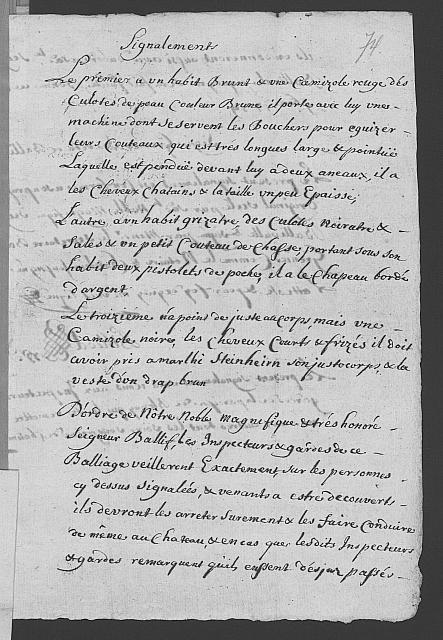 74
Signalements
Le premier a un habit Brunt & une Camizole rouge dès
Culotes de peau Couleur Brune, il porte avec luy une
machine dont se servent les Bouchers pour eguizer
leurs Couteaux qui est très longues large & pointüe
Laquelle est pendüe devant luy a deux aneaux, il a
les Cheveux Chatains & la taille un peu Epaisse;
L'autre a un habit grizatre des Culotes Noiratre &
Sales & un petit Couteau de Chasse, portant sous son
habit deux pistolets de poche, il a le Chapeau bordé
d'argent
Le troizieme n'a point de juste au corps, mais une
Camizole noire, les Cheveux Courts & frizés il doit
avoir pris a Steinheirn son justcorps, & la
veste d'un drap brun
D'ordre de Nôtre Noble magnifique & très honoré
Seigneur Ballif, les Inspecteurs & gardes de ce
Balliage veilleront Exactement sur les personnes
cy dessus signalées, & venants a estre decouverts
ils devront les arreter surement & les faire Conduire
de même au Chateau, & en cas que lesdits Inspecteurs
& gardes remarquent qu'ils eussent desja passés